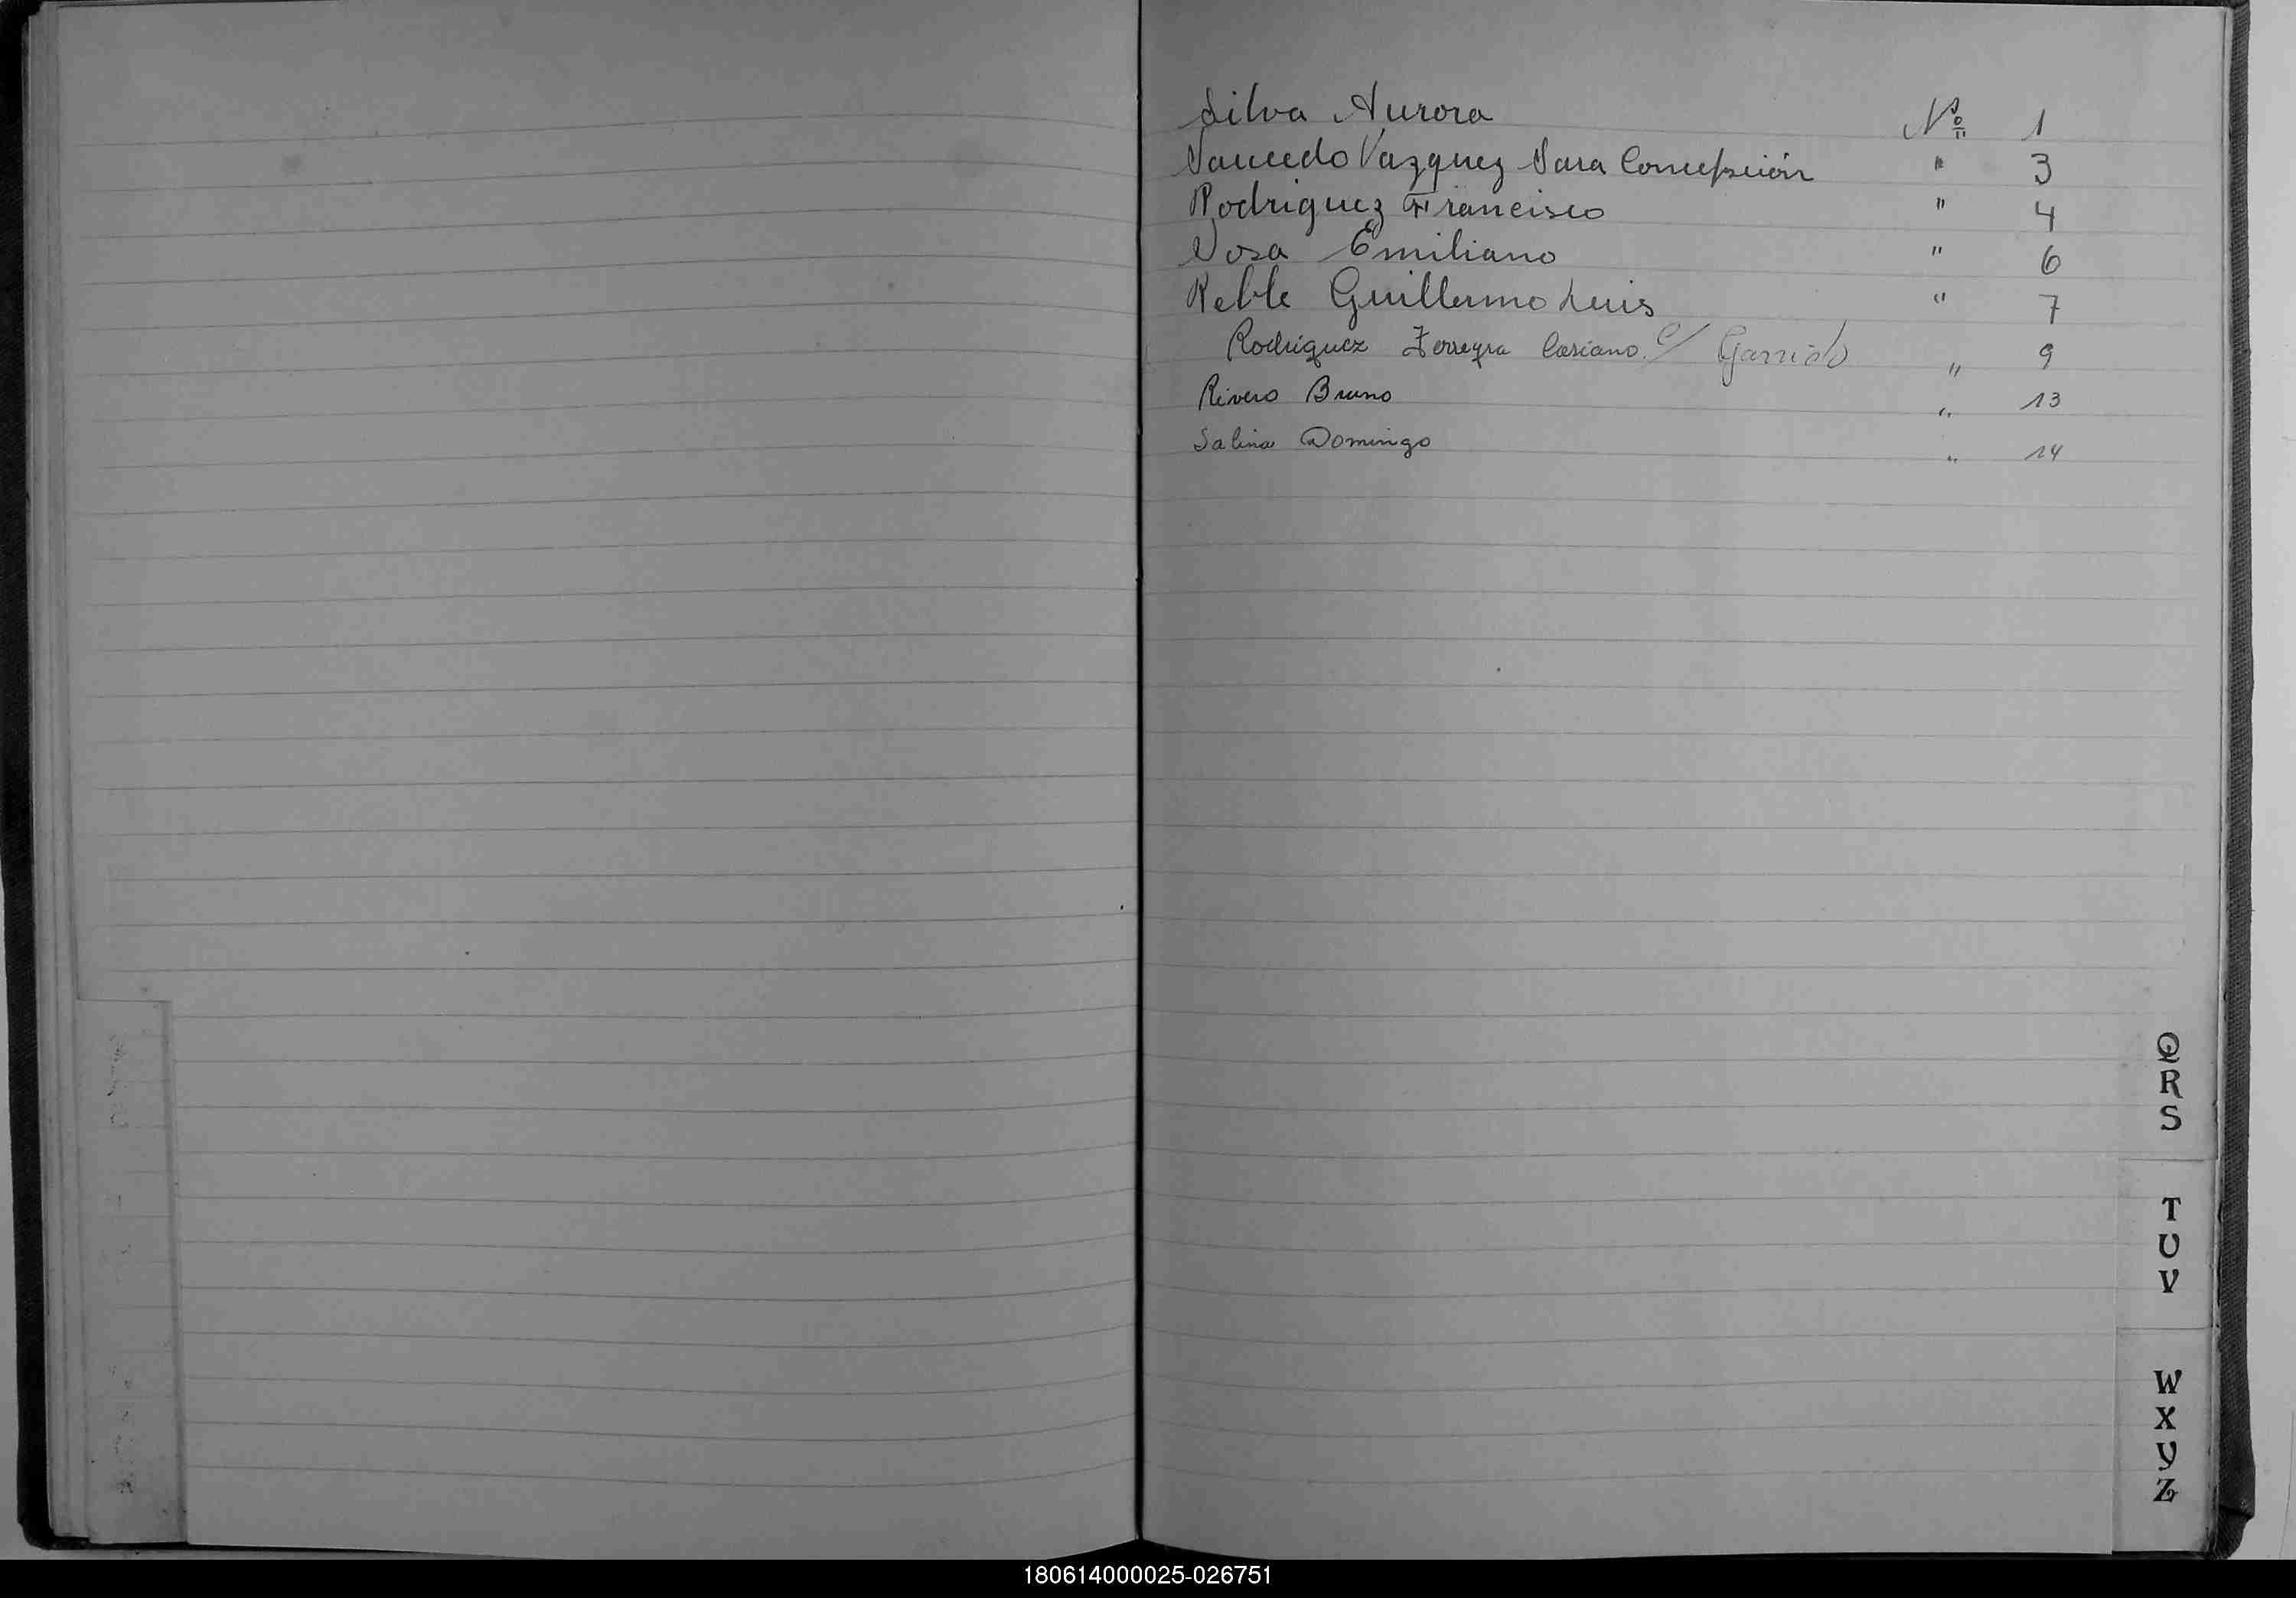 Silva Aurora Nº 1
Saucedo Vazquez Sara Concepción " 3
Rodriguez Francisco " 4
Sosa Emiliano " 6
Reble Guillermo Luis " 7
Rodriguez Ferreyra Casiano c/ Garrido " 9
Rivero Bruno " 13
Salina Domingo " 14
Q
R
S
T
U
V
W
X
Y
Z
180614000025-026751